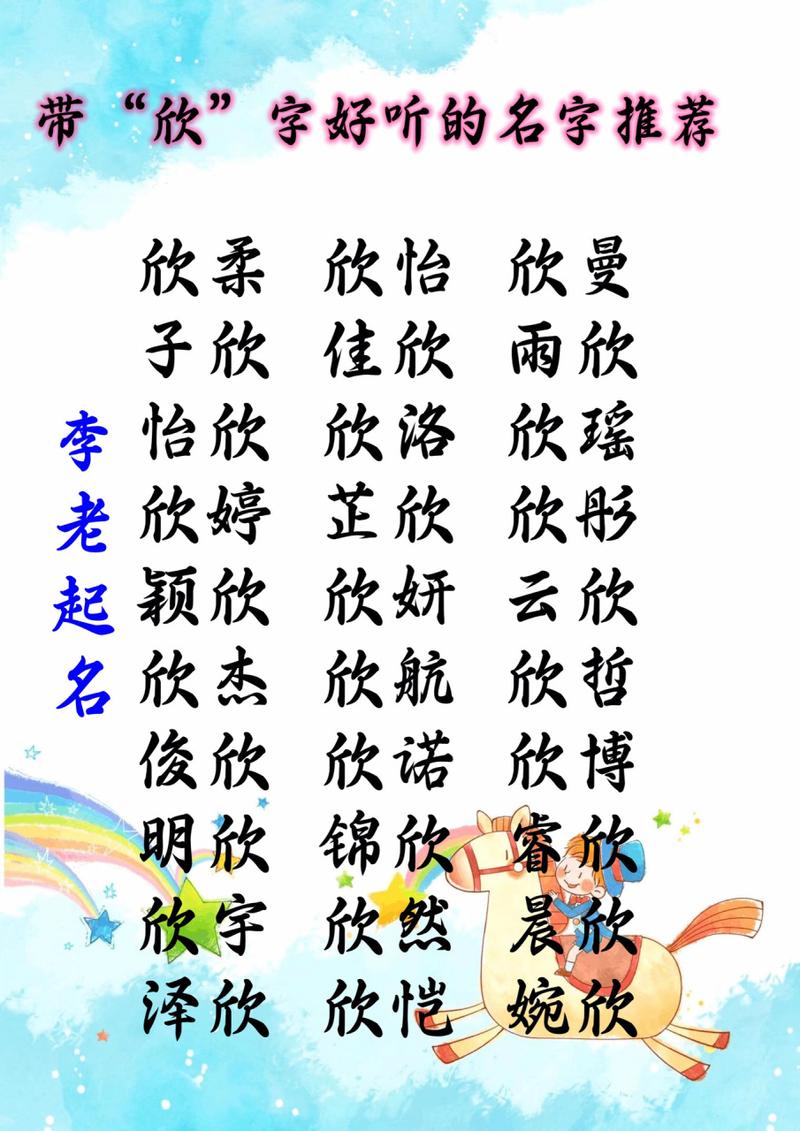 带“欣”字好听的名字推荐
欣柔 欣怡 欣曼
子欣 佳欣 雨欣
怡欣 欣洛 欣瑶
欣婷 芷欣 欣彤
颖欣 欣妍 云欣
欣杰 欣航 欣哲
俊欣 欣诺 欣博
明欣 锦欣 睿欣
欣宇 欣然 晨欣
泽欣 欣恺 婉欣
李老起名